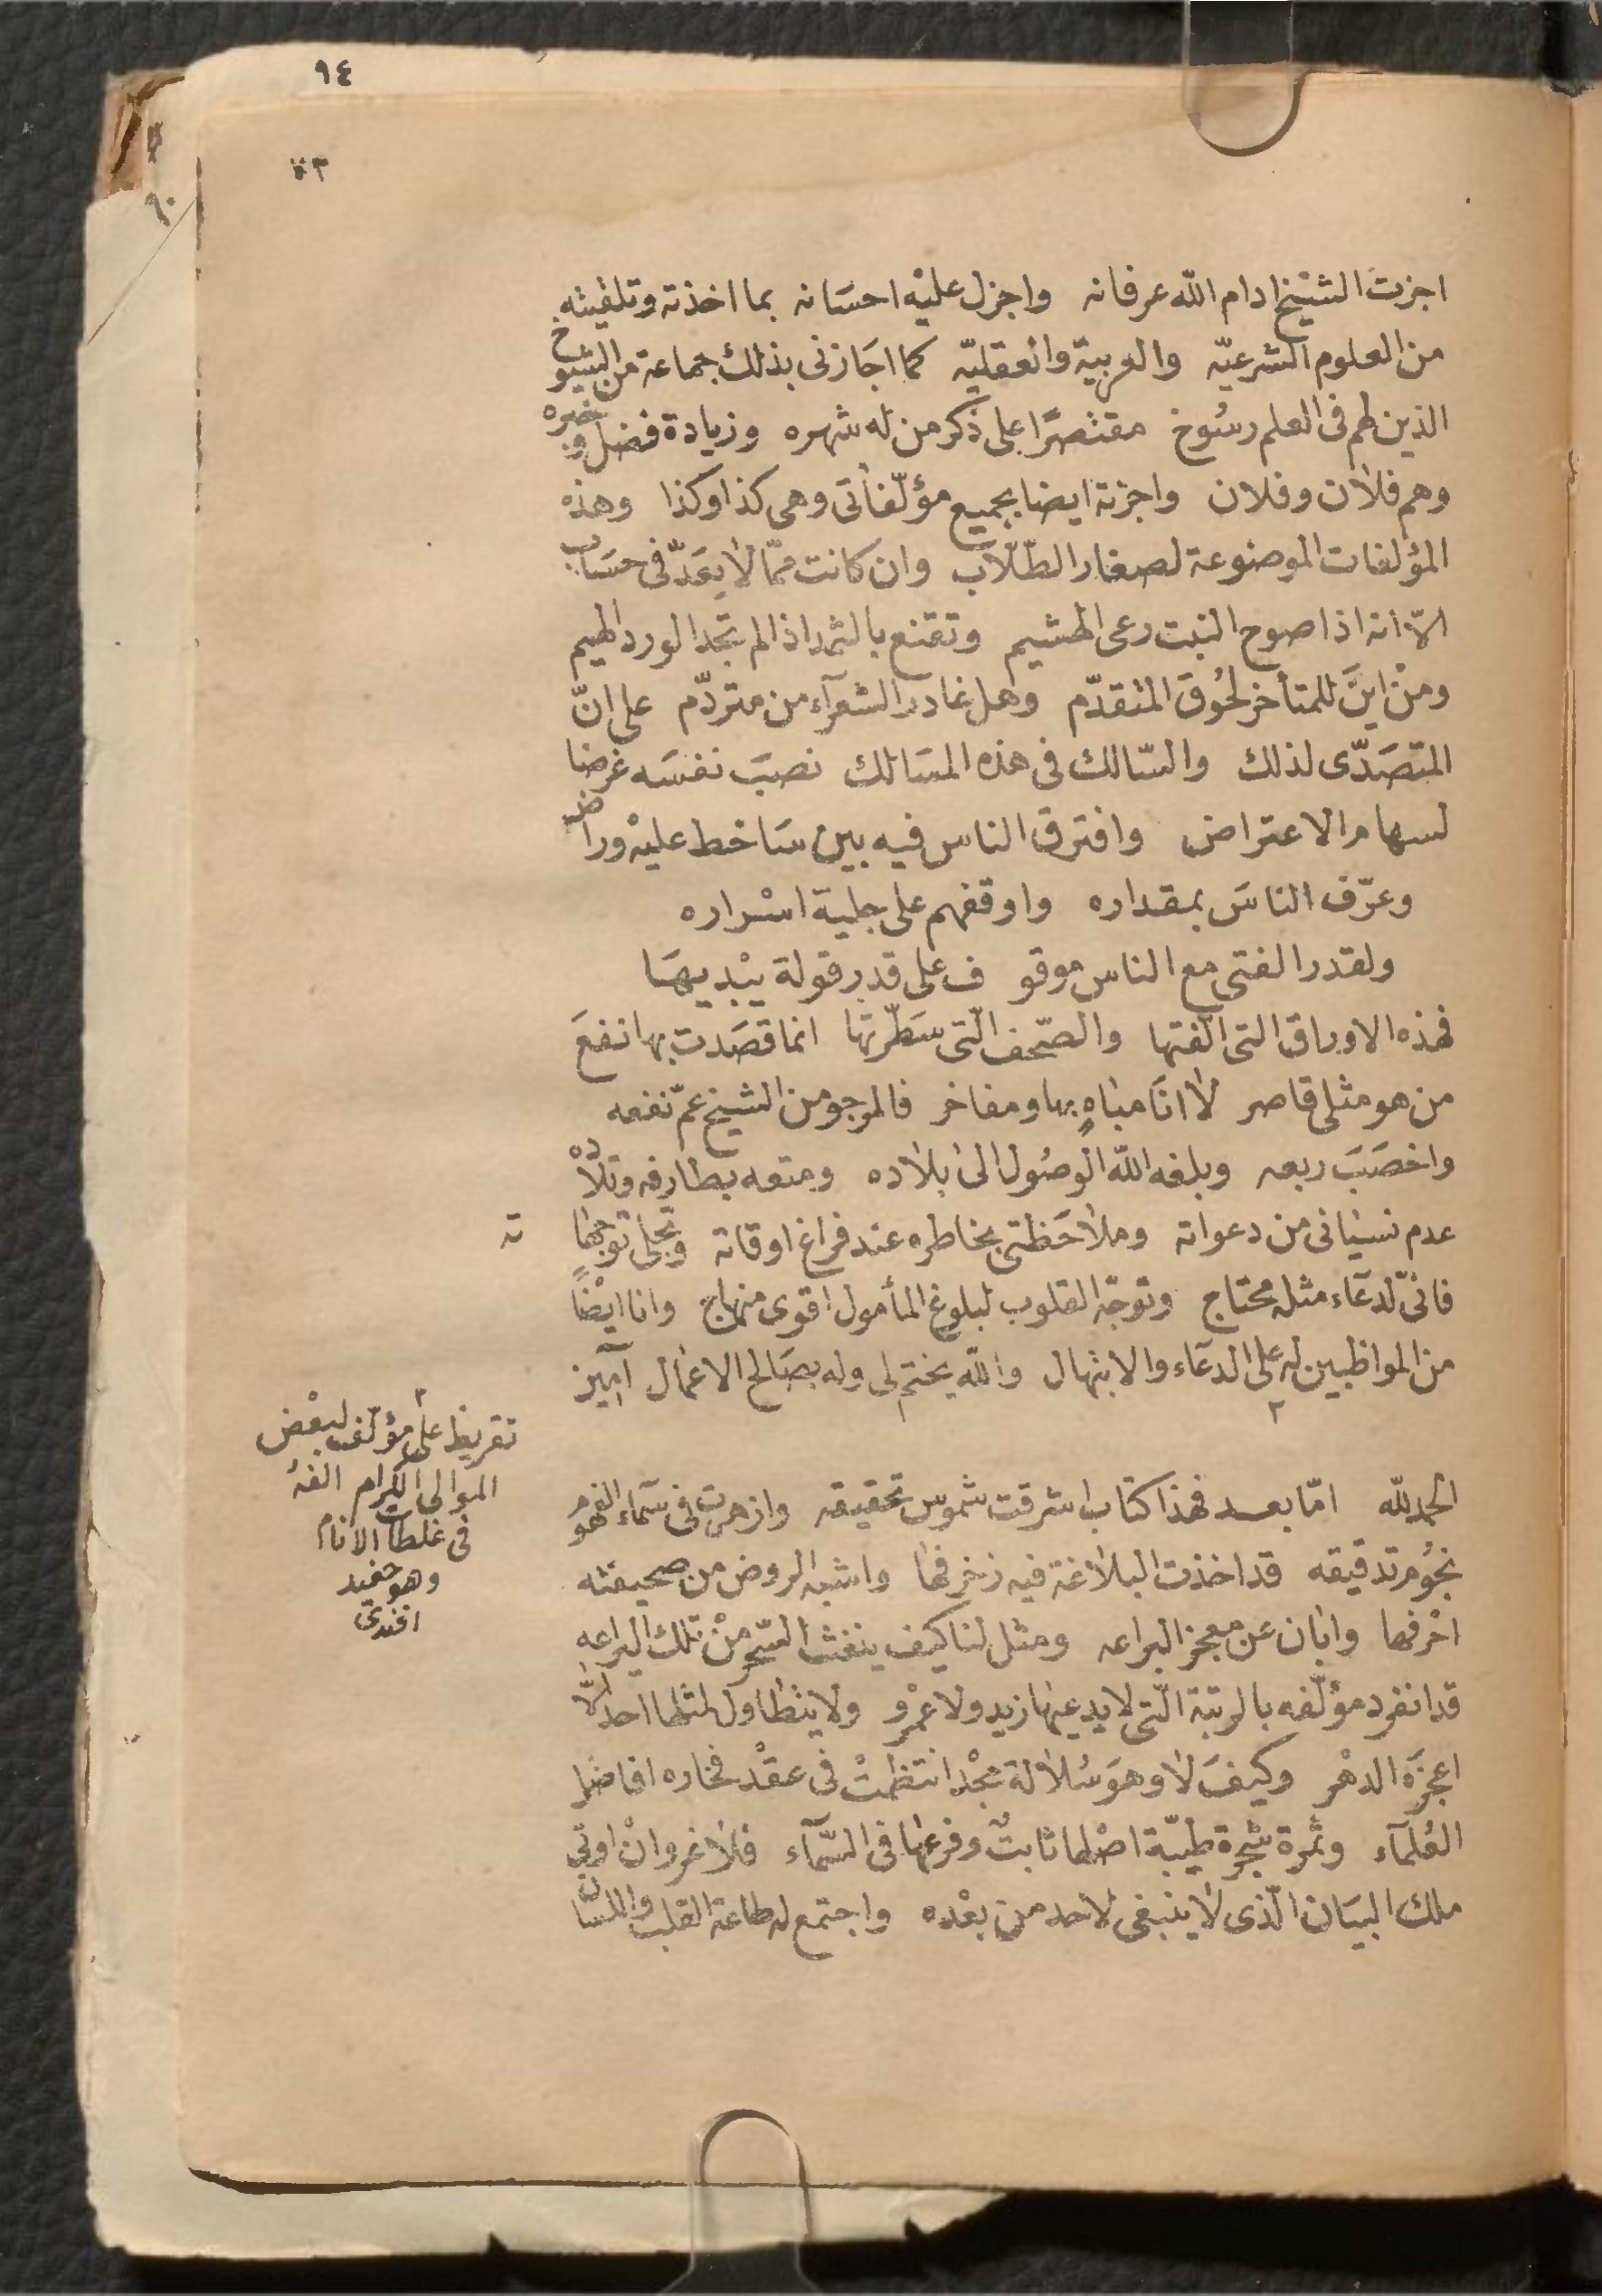 ٩٤
٩٠
اجزت الشيخ ادام الله عرفانه واجزل عليه احسانه بما اخذته وتلقيته
من العلوم الشرعيّه والعربية والعقليّه كما اجازنى بذلك جماعة من الشيوخ
الذين لهم فى العلم رسُوخ مقتصرًا على ذكر من له شهره وزيادة فضل وخبره
وهم فلان وفلان واجزته ايضا بجميع مؤلّفاتى وهى كذا وكذا وهذه
المؤلفات الموضوعة لصغار الطلّاب وان كانت ممّا لا يعَدّ فى حسَاب
الّا انه اذا صوح النبت رعى الهشيم وتقنع بالثمد اذا لم تجد الورد الهيم
ومنْ اينَ للمتأخر لحُوق المتقدّم وهل غادر الشعرآء من متردّم على انّ
المتصَدّى لذلك والسّالك فى هذه المسَالك نصبَ نفسَه غرضا
لسهام الاعتراض وافترق الناس فيه بين سَاخط عليْه وراض
وعرّف الناسَ بمقداره واوقفهم على جلية اسْراره
ولقدر الفتى مع الناس موقو ف على قدر قولة يبْديهَا
فهذه الاوراق التى الّفتها والصّحف الّتى سَطّرتها انما قصَدت بها نفعَ
من هو مثلى قاصر لا انَا مباهٍ بها ومفاخر فالمرجو من الشيخ عمّ نفعه
واخصَبَ ربعه وبلغه الله الوصُول الى بلاده ومتعه بطارفه وتلاده
عدم نسيانى من دعواته وملاحَظتى بخاطره عند فراغ اوقاته وتجلى توجهاته
فانىّ لدعَاء مثله محتاج وتوجّه القلوب لبلوغ المأمول اقوى منهاج وانا ايضًا
من المواظبين له على الدعَاء والابتهال والله يختم لى وله بصَالح الاعمال آمين
تقريظ على مؤلّف لبعْض
الموالى الكرام الفهُ
فى غلطات الانام
وهو حفيد
افندى
الحمد لله امّا بعد فهذا كتاب اشرقت شموس تحقيقه وازهرت فى سمآء الفهوم
نجُوم تدقيقه قد اخذت البلاغة فيه زخرفها واشبه الروض من صحيفته
احْرفها وابان عن معجز البراعه ومثل لنا كيف ينفث السّحر منْ تلك اليراعه
قد انفرد مؤلّفه بالرتبة الّتى لا يدعيها زيد ولا عمْرو ولا يتطاول لمثلها احد الّا
اعجزَه الدهْر وكيفَ لا وهوَ سُلالة مجْد انتظمتْ فى عقْد فخاره افاضل
العُلمآء وثمرة شجرة طيبّة اصْلها ثابتٌ وفرعها فى السّمآء فلا غرو انْ اوتى
ملك البيَان الّذى لا ينبغى لاحد من بعْده واجتمع له طاعة القلب واللسان